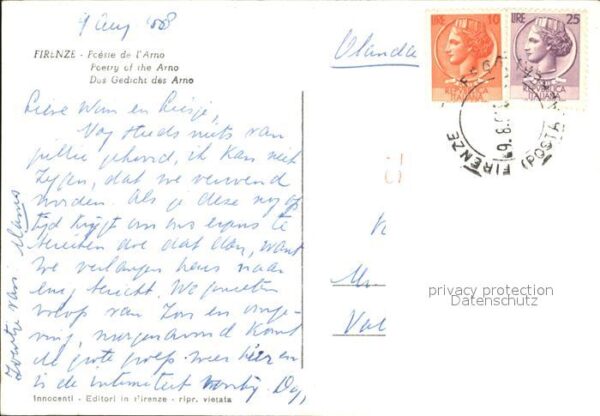 9 Aug 1958
FIRENZE - Poésie de l'Arno
Poetry of the Arno
Das Gedicht des Arno
Olanda
LIRE 10
REPVBBLICA ITALIANA
LIRE 25
REPVBBLICA ITALIANA
FIRENZE
(POSTA
Lieve Wim en Liesje,
Nog steeds niets van
jullie gehoord, ik kan niet
zeggen, dat we verwend
worden. Als je deze nog op
tijd krijgt om ons ergens te
schrijven doe dat dan, want
we verlangen heus naar
enig bericht. We genieten
volop van zon en omge-
ving, morgenavond komt
de grote groep weer hier en
is de intimiteit voorbij. Dag,
van Mams
privacy protection
Datenschutz
Innocenti - Editori in Firenze - ripr. vietata